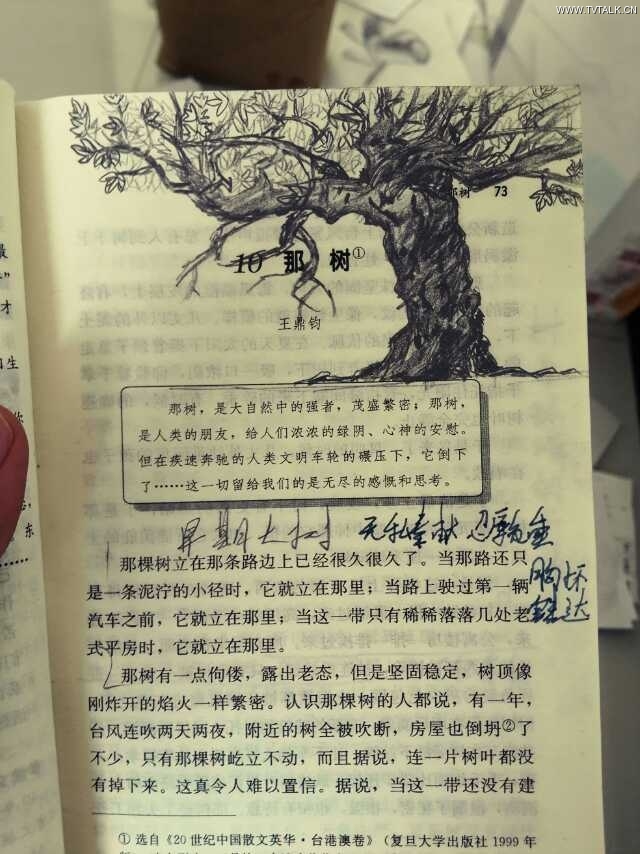 WWW.TVTALK.CN
那树 73
10 那 树①
王鼎钧
那树，是大自然中的强者，茂盛繁密；那树，
是人类的朋友，给人们浓浓的绿阴、心神的安慰。
但在疾速奔驰的人类文明车轮的碾压下，它倒下
了……这一切留给我们的是无尽的感慨和思考。
早期大树 无私奉献 忍辱负重
胸怀
那棵树立在那条路边上已经很久很久了。当那路还只
是一条泥泞的小径时，它就立在那里；当路上驶过第一辆
汽车之前，它就立在那里；当这一带只有稀稀落落几处老
式平房时，它就立在那里。
那树有一点佝偻，露出老态，但是坚固稳定，树顶像
刚炸开的焰火一样繁密。认识那棵树的人都说，有一年，
台风连吹两天两夜，附近的树全被吹断，房屋也倒坍②了
不少，只有那棵树屹立不动，而且据说，连一片树叶都没
有掉下来。这真令人难以置信。据说，当这一带还没有建
① 选自《20世纪中国散文英华·台港澳卷》（复旦大学出版社1999年